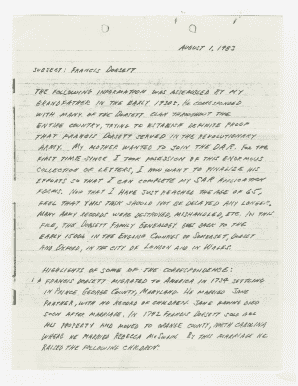 AUGUST 1, 1983
SUBJECT: FRANCIS DORSETT
THE FOLLOWING INFORMATION WAS ASSEMBLED BY MY
GRANDFATHER IN THE EARLY 1930S. HE CORRESPONDED
WITH MANY OF THE DORSETT CLAN THROUGHOUT THE
ENTIRE COUNTRY, TRYING TO ESTABLISH DEFINITE PROOF
THAT FRANCIS DORSETT SERVED IN THE REVOLUTIONARY
ARMY. MY MOTHER WANTED TO JOIN THE DAR. FOR THE
FIRST TIME SINCE I TOOK POSSESSION OF THIS ENORMOUS
COLLECTION OF LETTERS, I NOW WANT TO FINALIZE HIS
EFFORTS SO THAT I CAN COMPLETE MY SAR APPLICATION
FORMS. NOW THAT I HAVE JUST REACHED THE AGE OF 65,
FEEL THAT THIS TASK SHOULD NOT BE DELAYED ANY LONGER.
MANY ARMY RECORDS WERE DESTROYED, MISHANDLED, ETC. IN THIS
FILE, THE DORSETT FAMILY GENEALOGIES GOES BACK TO THE
EARLY 1500S IN THE ENGLISH COUNTIES OF SOMERSET, DORSET
AND OXFORD, IN THE CITY OF LONDON AND IN WALES.
HIGHLIGHTS OF SOME OF THE CORRESPONDENCE:
FRANCIS DORSETT MIGRATED TO AMERICA IN 1734 SETTLING
IN PRINCE GEORGE COUNTY, MARYLAND. HE MARRIED JANE
PANTHER, WITH NO RECORD OF CHILDREN. JANE HAVING DIED
SOON AFTER MARRIAGE. IN 1742 FRANCIS DORSETT SOLD ALL
HIS PROPERTY AND MOVED TO ORANGE COUNTY, NORTH CAROLINA
WHERE HE MARRIED REBECCA MCSWAIN. BY THIS MARRIAGE HE
RAISED THE FOLLOWING CHILDREN: